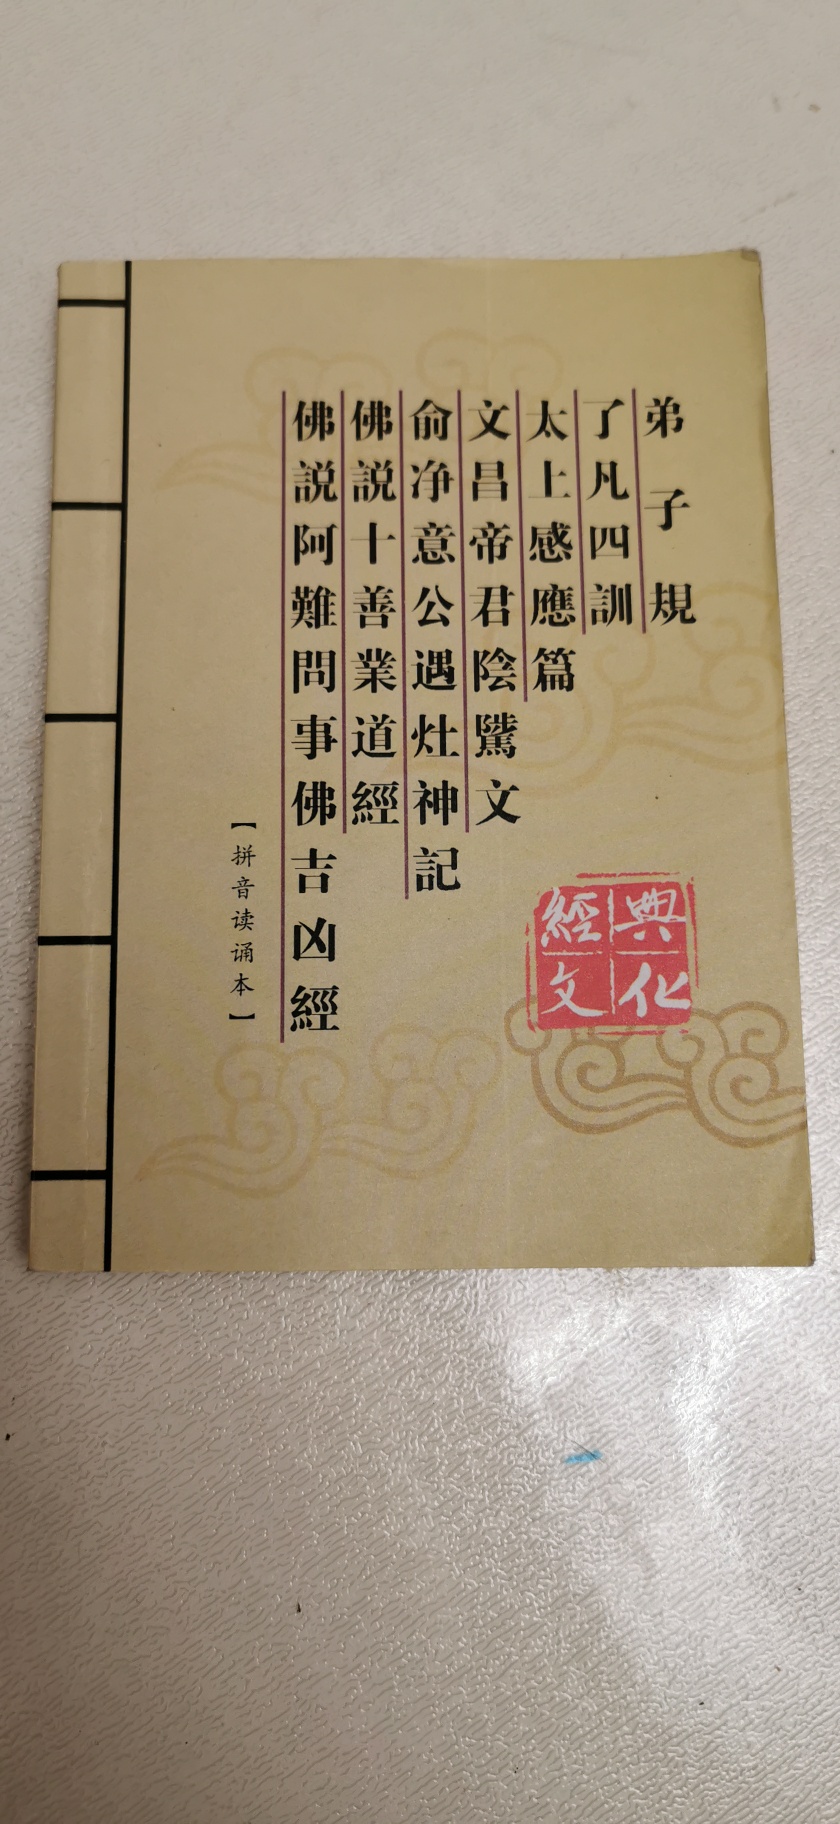 弟子規
了凡四訓
太上感應篇
文昌帝君陰騭文
俞净意公遇灶神記
佛説十善業道經
佛説阿難問事佛吉凶經
【拼音读诵本】
經典
文化